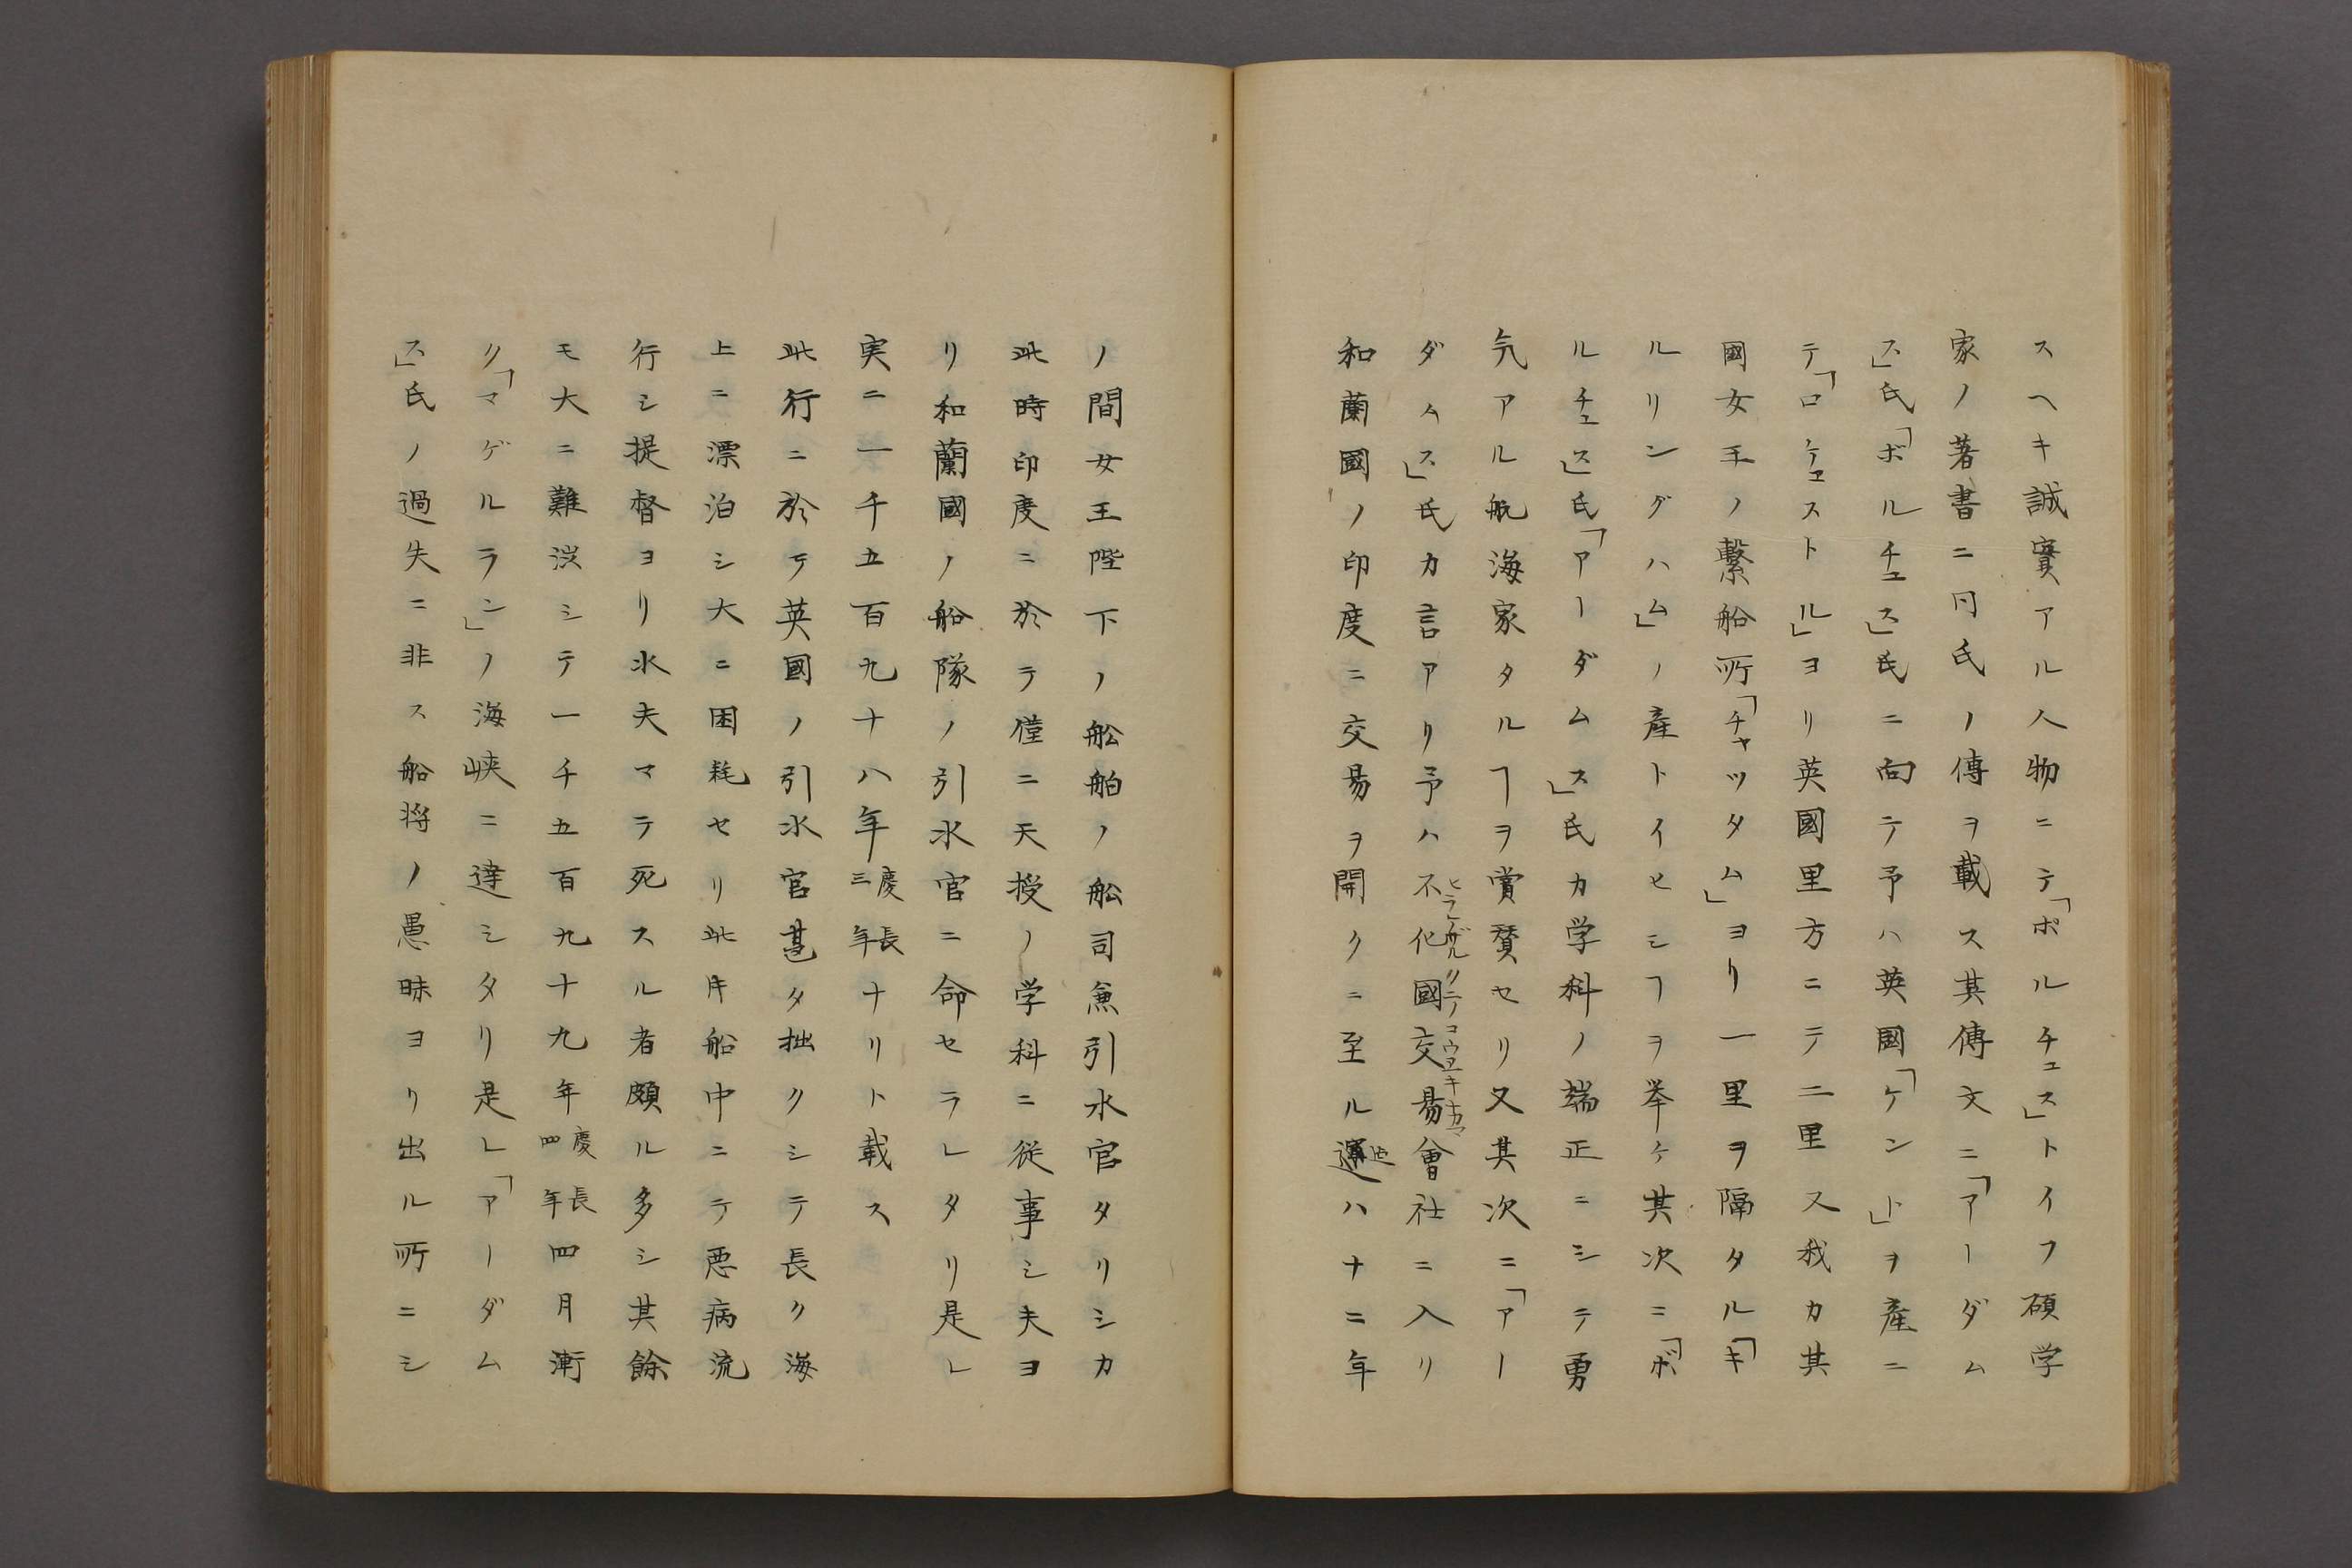 スヘキ誠實アル人物ニテ「ポルチェス」トイフ碩学
家ノ著書ニ同氏ノ傳ヲ載ス其傳文ニ「アーダム
ス」氏「ボルチェス」氏ニ向テ予ハ英國「ケント」ヲ産ニ
テ「ロケェストル」ヨリ英國里方ニテ二里ス我カ其
國女王ノ繋船所「チャッタム」ヨリ一里ヲ隔タル「キ
ルリンダハム」ノ産トイヒシヿヲ挙ケ其次ニ「ボ
ルチェス」氏「アーダムス」氏カ学科ノ端正ニシテ勇
気アル航海家タルヿヲ賞賛セリ又其次ニ「アー
ダムス」氏カ言アリ予ハ不化國交易會社ニ入リ
ヒラケザルクニノコウエキナカマ
和蘭國ノ印度ニ交易ヲ開クニ至ル迠ハ十二年
ノ間女王陛下ノ舩舶ノ舩司兼引水官タリシカ
此時印度ニ於テ僅ニ天授ノ学科ニ従事シ夫ヨ
リ和蘭國ノ船隊ノ引水官ニ命セラレタリ是レ
実ニ一千五百九十八年慶長三年ナリト載ス
此行ニ於テ英國ノ引水官甚タ拙クシテ長ク海
上ニ漂泊シ大ニ困耗セリ此时船中ニテ悪病流
行シ提督ヨリ水夫マテ死スル者頗ル多シ其餘
モ大ニ難渋シテ一千五百九十九年慶長四年四月漸
ク「マゲルラン」ノ海峡ニ達シタリ是レ「アーダム
ス」氏ノ過失ニ非ス船将ノ愚昧ヨリ出ル所ニシ